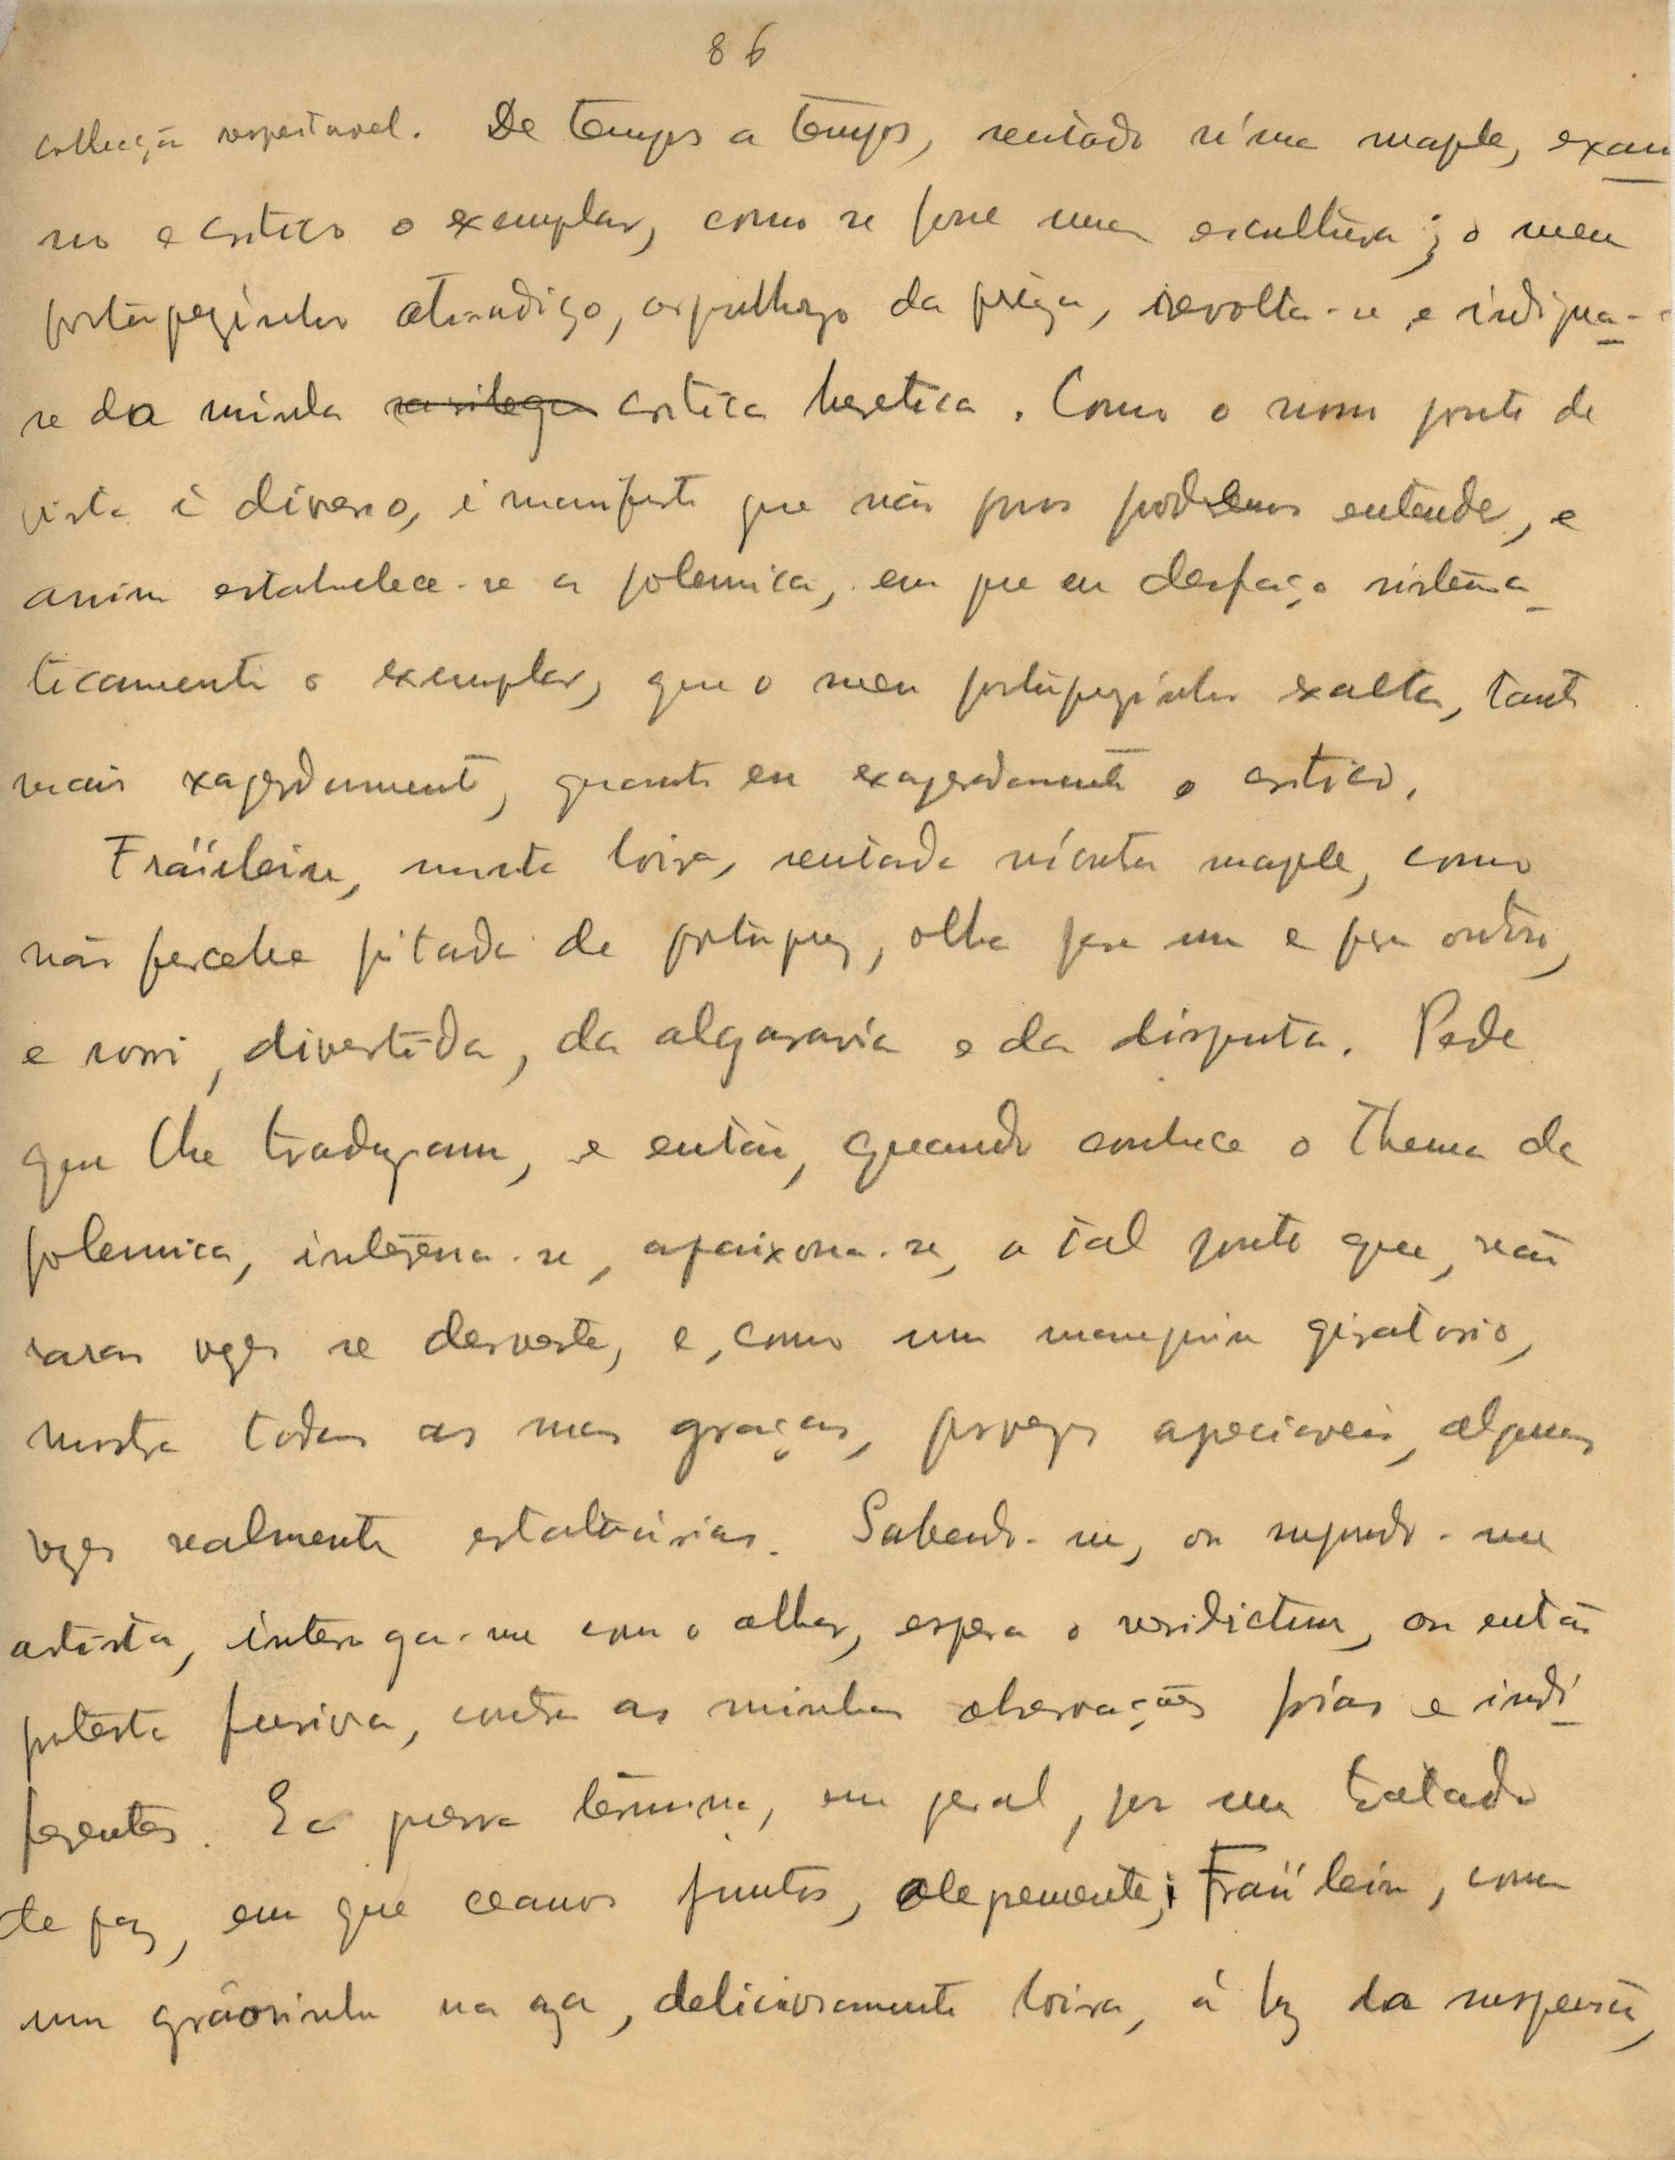 86
collecção respeitavel. De tempos a tempos, sentado n'um maple, exami
no e critico o exemplar, como se fosse uma escultura; o meu
portuguezinho atiradiço, orgulhozo da prêza, revolta-se e indigna-
se da minha sacrilega critica heretica. Como o nosso ponto de
vista é diverso, é manifesto que não nos podemos entender, e
assim estabelece-se a polemica, em que eu desfaço sistema_
ticamente o exemplar, que o meu portuguezinho exalta, tanto
mais xageradamente, quanto eu exageradamente o critico.
Fraülein, muito loira, sentada n'outro maple, como
não percebe pitada de portuguez, olha para um e para outro,
e sorri, divertida, da algaravia e da disputa. Pede
que lhe traduzam, e então, quando conhece o thema da
polemica, interessa-se, apaixona-se, a tal ponto que, não
raras vezes se desveste, e, como um manequim giratorio,
mostra todas as suas graças, por vezes apreciaveis, algumas
vezes realmente estatuárias. Sabendo-me, ou supondo-me
artista, interroga-me com o olhar, espera o veridictum, ou então
protesta furiosa, contra as minhas observações frias e indi_
ferentes. E a guerra termina, em geral, por um tratado
de paz, em que ceamos juntos, alegremente; Fraülein, com
um grãosinho na aza, deliciosamente loira, á luz da suspensão,